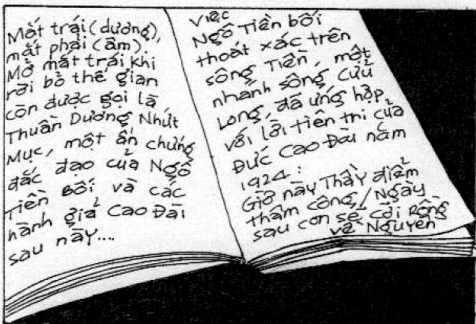 Mắt trái (dương),
mắt phải (âm).
Mở mắt trái khi
rời bỏ thế gian
còn được gọi là
Thuần Dương Nhứt
Mục, một ấn chứng
đắc đạo của Ngô
Tiền Bối và các
hành giả Cao Đài
sau này...
Việc
Ngô Tiền bối
thoát xác trên
sông Tiền, một
nhánh sông Cửu
Long, đã ứng hợp
với lời tiên tri của
Đức Cao Đài năm
1924:
Giờ này Thầy điểm
thâm công, / Ngày
sau con sẽ cỡi rồng
về Nguyên